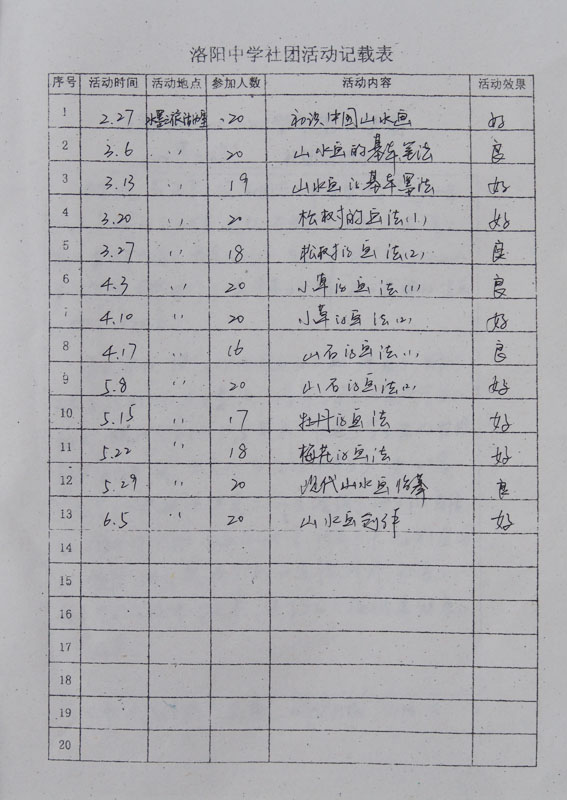 洛阳中学社团活动记载表
序号 活动时间 活动地点 参加人数 活动内容 活动效果
1 2.27 20 初识中国山水画 好
2 3.6 〃 20 山水画的基本笔法 良
3 3.13 〃 19 山水画的基本墨法 好
4 3.20 〃 20 松树的画法(1) 好
5 3.27 〃 18 松树的画法(2) 良
6 4.3 〃 20 小草的画法(1) 良
7 4.10 〃 20 小草的画法(2) 好
8 4.17 〃 16 山石的画法(1) 良
9 5.8 〃 20 山石的画法(2) 好
10 5.15 〃 17 牡丹的画法 好
11 5.22 〃 18 梅花的画法 好
12 5.29 〃 20 现代山水画临摹 良
13 6.5 〃 20 山水画创作 好
14
15
16
17
18
19
20